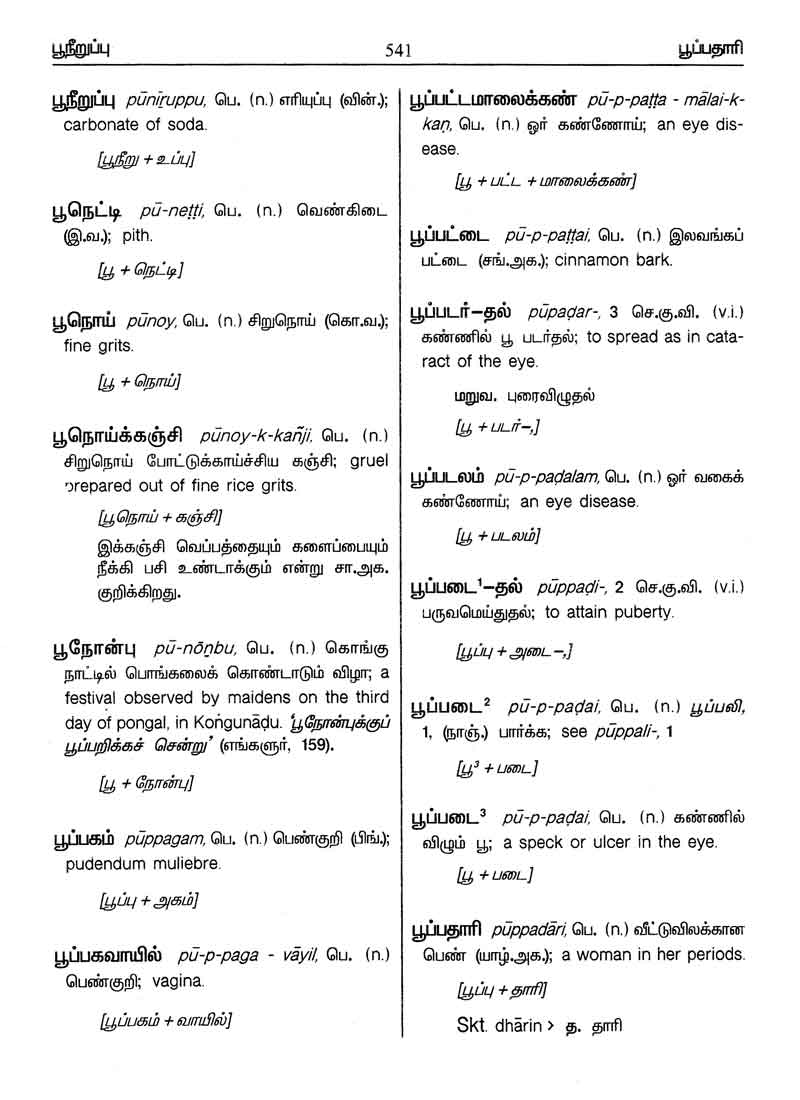 பூநீறுப்பு 541 பூப்பதாரி
பூநீறுப்பு pūnīṟuppu, பெ. (n.) எரியுப்பு (வின்.);
carbonate of soda.
[பூநீறு + உப்பு]
பூநெட்டி pū-neṭṭi, பெ. (n.) வெண்கிடை
(இ.வ.); pith.
[பூ + நெட்டி]
பூநொய் pūnoy, பெ. (n.) சிறுநொய் (கொ.வ.);
fine grits.
[பூ + நொய்]
பூநொய்க்கஞ்சி pūnoy-k-kañji, பெ. (n.)
சிறுநொய் போட்டுக்காய்ச்சிய கஞ்சி; gruel
prepared out of fine rice grits.
[பூநொய் + கஞ்சி]
இக்கஞ்சி வெப்பத்தையும் களைப்பையும்
நீக்கி பசி உண்டாக்கும் என்று சா.அக.
குறிக்கிறது.
பூநோன்பு pū-nōṉbu, பெ. (n.) கொங்கு
நாட்டில் பொங்கலைக் கொண்டாடும் விழா; a
festival observed by maidens on the third
day of pongal, in Koṅgunāḍu. 'பூநோன்புக்குப்
பூப்பறிக்கச் சென்று' (எங்களூர், 159).
[பூ + நோன்பு]
பூப்பகம் pūppagam, பெ. (n.) பெண்குறி (பிங்.);
pudendum muliebre.
[பூப்பு + அகம்]
பூப்பகவாயில் pū-p-paga - vāyil, பெ. (n.)
பெண்குறி; vagina.
[பூப்பகம் + வாயில்]
பூப்பட்டமாலைக்கண் pū-p-paṭṭa - mālai-k-
kaṇ, பெ. (n.) ஓர் கண்ணோய்; an eye dis-
ease.
[பூ + பட்ட + மாலைக்கண்]
பூப்பட்டை pū-p-paṭṭai, பெ. (n.) இலவங்கப்
பட்டை (சங்.அக.); cinnamon bark.
பூப்படர்-தல் pūpaḍar-, 3 செ.கு.வி. (v.i.)
கண்ணில் பூ படர்தல்; to spread as in cata-
ract of the eye.
மறுவ. புரைவிழுதல்
[பூ + படர்-,]
பூப்படலம் pū-p-paḍalam, பெ. (n.) ஓர் வகைக்
கண்ணோய்; an eye disease.
[பூ + படலம்]
பூப்படை¹-தல் pūppaḍi-, 2 செ.கு.வி. (v.i.)
பருவமெய்துதல்; to attain puberty.
[பூப்பு + அடை-,]
பூப்படை² pū-p-paḍai, பெ. (n.) பூப்பலி,
1, (நாஞ்.) பார்க்க; see pūppali-, 1
[பூ³ + படை]
பூப்படை³ pū-p-paḍai, பெ. (n.) கண்ணில்
விழும் பூ; a speck or ulcer in the eye.
[பூ + படை]
பூப்பதாரி pūppadāri, பெ. (n.) வீட்டுவிலக்கான
பெண் (யாழ்.அக.); a woman in her periods.
[பூப்பு + தாரி]
Skt. dhārin > த. தாரி